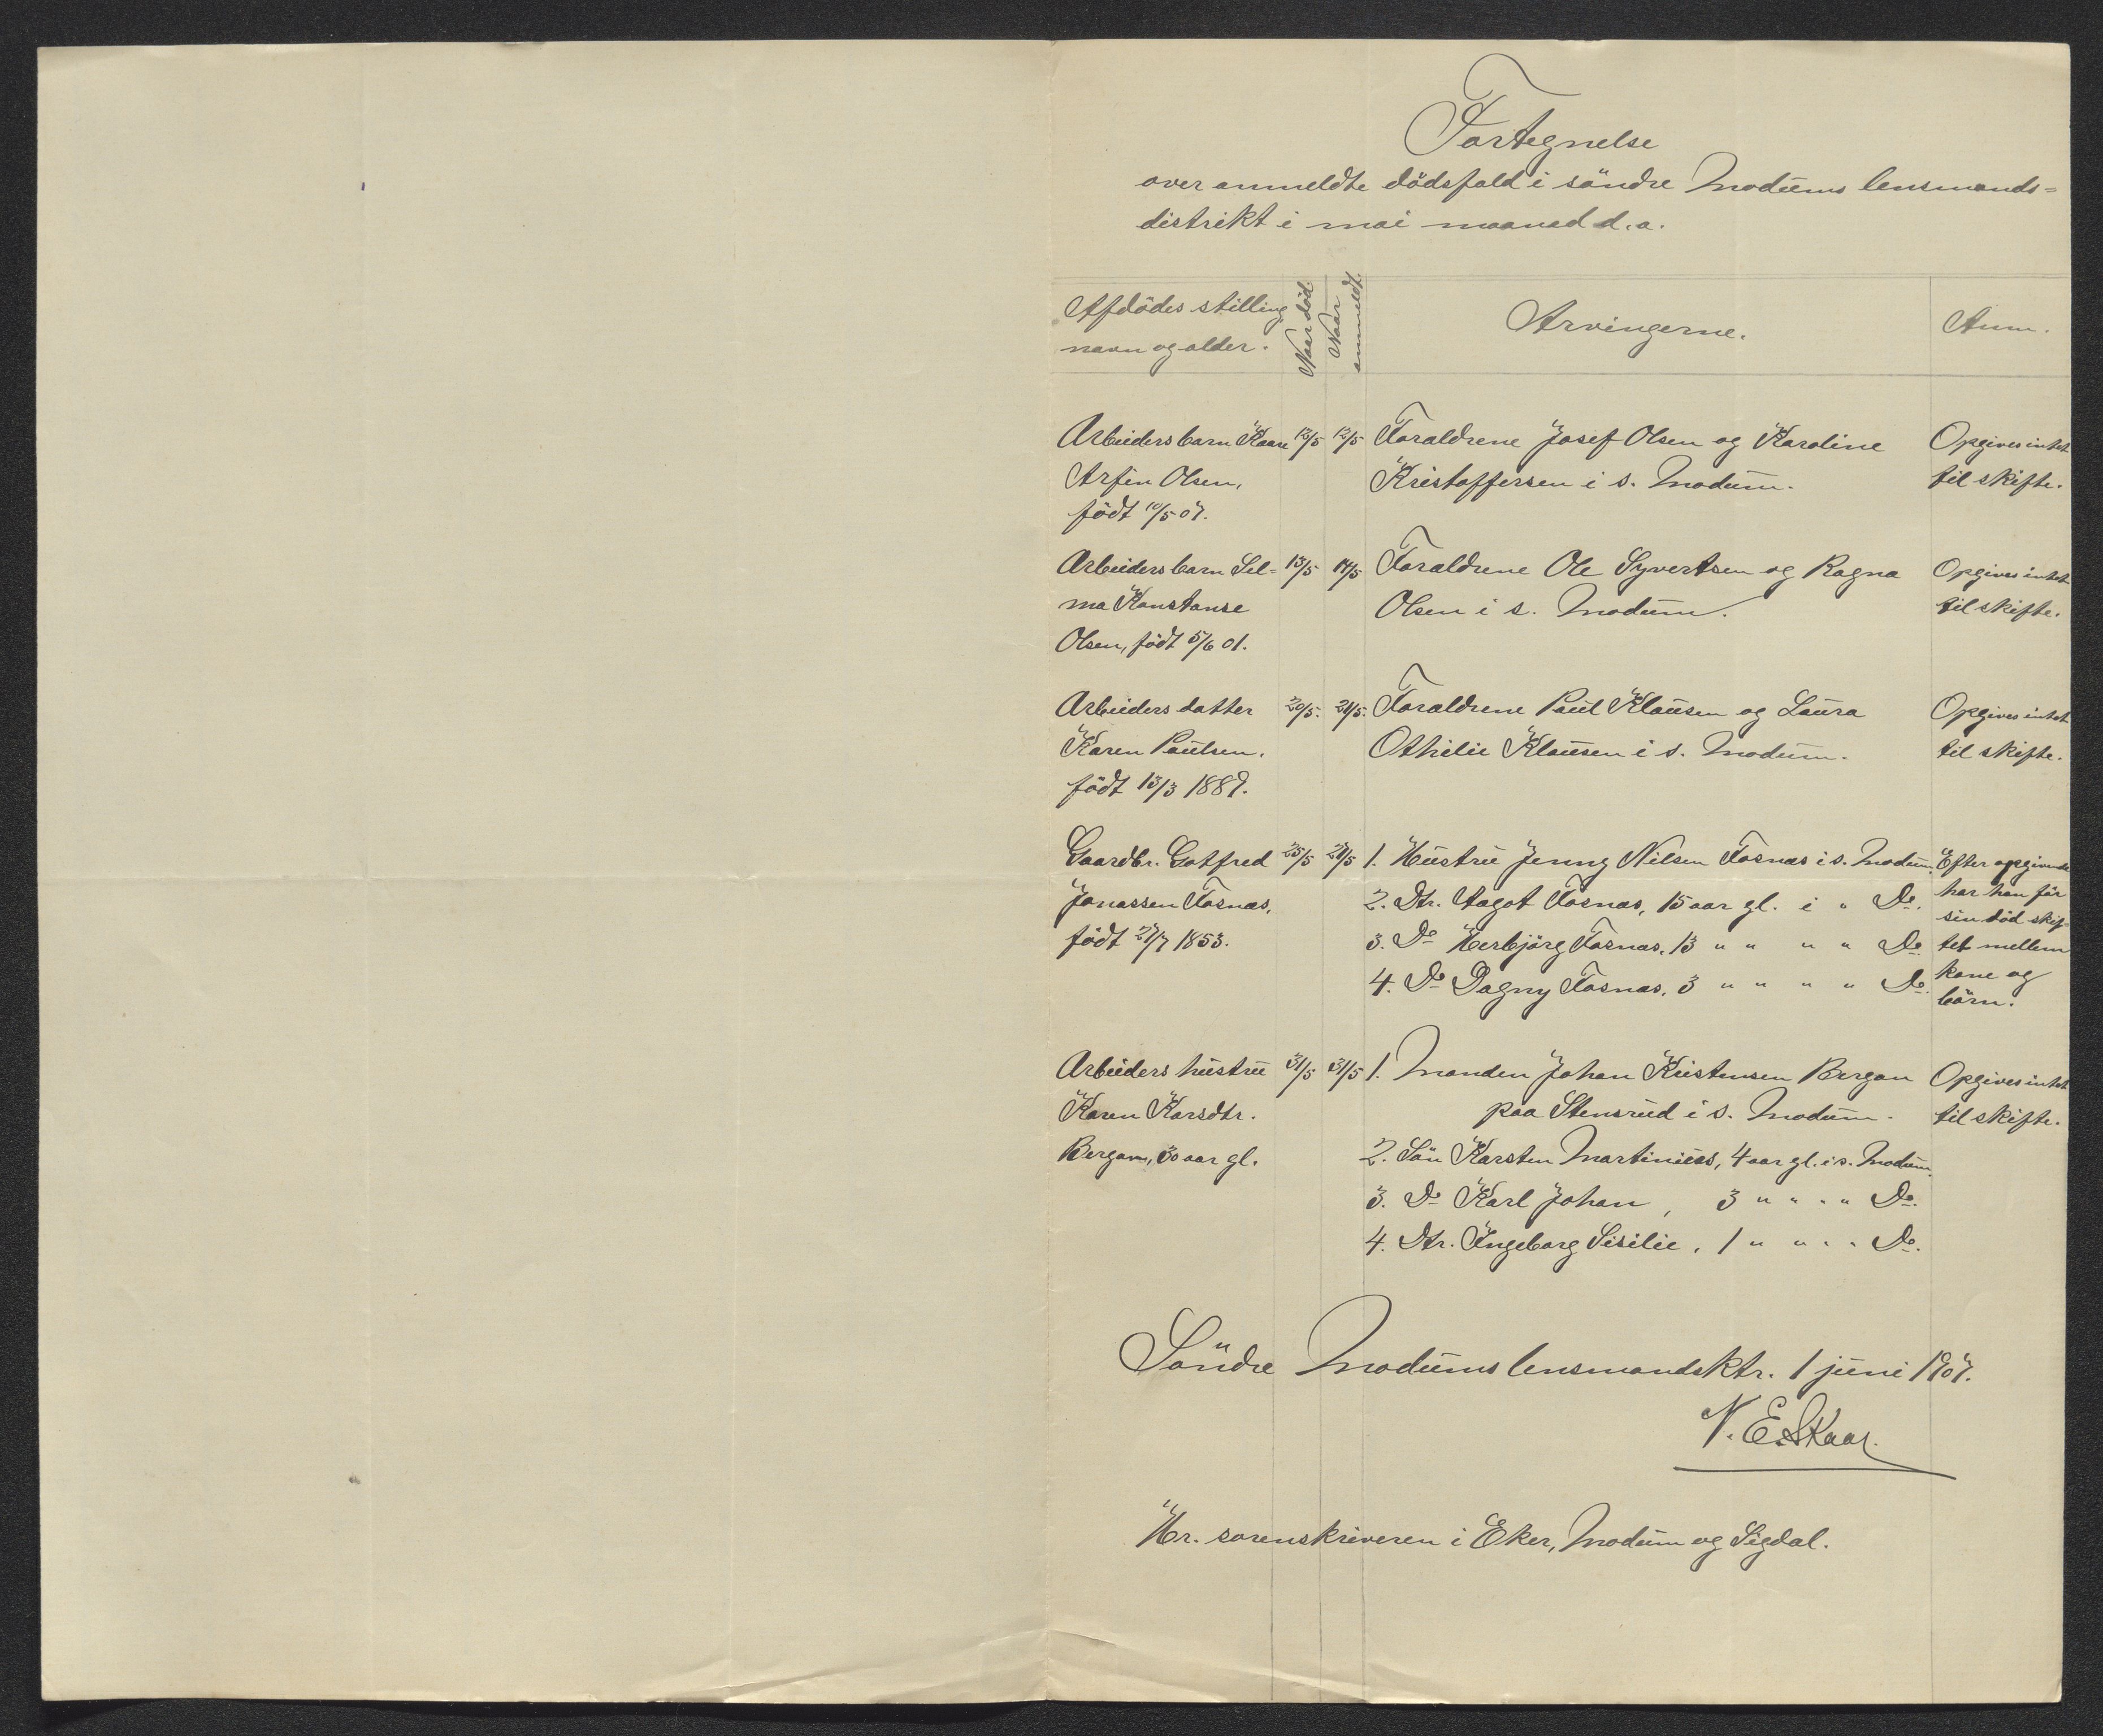 Fortegnelse
over anmeldte dödsfald i söndre Modums lensmands-
distrikt i mai maaned d.a.
Afdödes stilling navn og alder. Naar död Naar anmeldt Arvingerne. Anm.
Arbeidersbarn Kaare 12/5 12/5 Foraldrene Josef Olsen og Karoline Opgives intet
Arfin Olsen, Kristoffersen i s. Modum. til skifte.
født 10/5 07.
Arbeidersbarn Sel- 13/5 14/5 Foraldrene Ole Syvertsen og Ragna Opgives intet
ma Konstanse Olsen i s. Modum. til skifte.
Olsen, födt 5/6 01.
Arbeiders datter 20/5. 21/5. Foraldrene Paul Klausen og Laura Opgives intet
Karen Paulsen. Othilie Klausen i s. Modum. til skifte.
födt 13/3 1887.
Gaardbr. Gotfred 25/5 27/5 1. Hustru Jenny Nilsen Fosnas i s. Modum. Efter opgivende
Jonassen Fosnas, 2. Dtr. Aagot Fosnas, 15 aar gl. i " Do. har han för
sin död skif-
födt 27/7 1853. 3. Do Herbjörg Fosnas, 13 " " " " Do. tet mellem
4. Do Dagny Fosnas, 3 " " " " Do. kone og
börn.
Arbeiders hustru 31/5 31/5 1. Manden Johan Kristensen Bergan Opgives intet
Karen Karsdtr. paa Stensrud i s. Modum. til skifte.
Bergan, 30 aar gl. 2. Sön Karsten Martinius, 4 aar gl. i s. Modum.
3. Do Karl Johan, 3 " " " " Do.
4. Dtr. Ingeborg Sisilie, 1 " " " " Do.
Söndre Modums lensmandsktr. 1 juni 1907.
N. E. Skaar.
Hr. sorenskriveren i Eker, Modum og Sigdal.